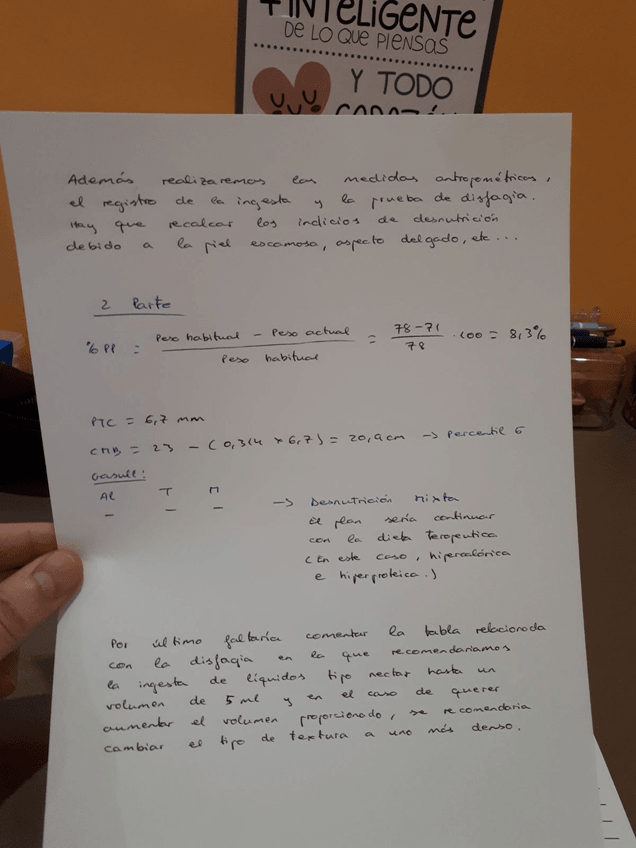 + INTELIGENTE
DE LO QUE PIENSAS
Y TODO
CORAZÓN
Además realizaremos las medidas antropométricas,
el registro de la ingesta y la prueba de disfagia.
Hay que recalcar los indicios de desnutrición
debido a la piel escamosa, aspecto delgado, etc...
2 Parte
% PP = Peso habitual - Peso actual / Peso habitual = 78-71 / 78 · 100 = 8,3%
PTC = 6,7 mm
CMB = 23 - (0,314 × 6,7) = 20,9cm → Percentil 5
Gasull:
AL T M
- - -
→ Desnutrición Mixta
El plan sería continuar
con la dieta terapeutica
(En este caso, hipercalórica
e hiperproteica.)
Por último faltaría comentar la tabla relacionada
con la disfagia en la que recomendaríamos
la ingesta de líquidos tipo nectar hasta un
volumen de 5 ml y en el caso de querer
aumentar el volumen proporcionado, se recomendaria
cambiar el tipo de textura a uno más denso.